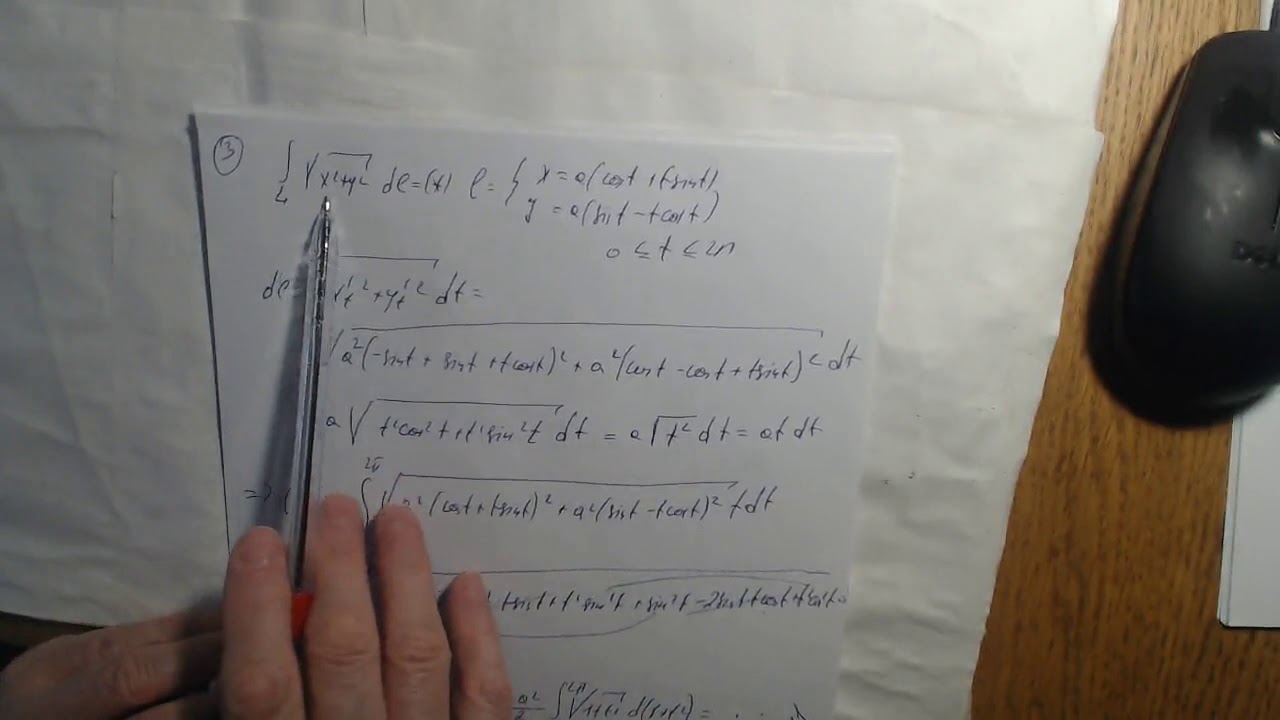 ③ ∫_L √(x²+y²) dl = (*) l = { x = a(cost + tsint)
y = a(sint - tcost)
0 ≤ t ≤ 2π
dl x't² + y't² dt =
a²(-sint + sint + tcost)² + a²(cost - cost + tsint)² dt
a √(t²cos²t + t²sin²t) dt = a√t² dt = at dt
=> ∫ 2π √(a²(cost + tsint)² + a²(sint - tcost)²) t dt
tsint + t²sin²t + sin²t - 2sint tcost + t²cos²t
a²/2 ∫ 2π √